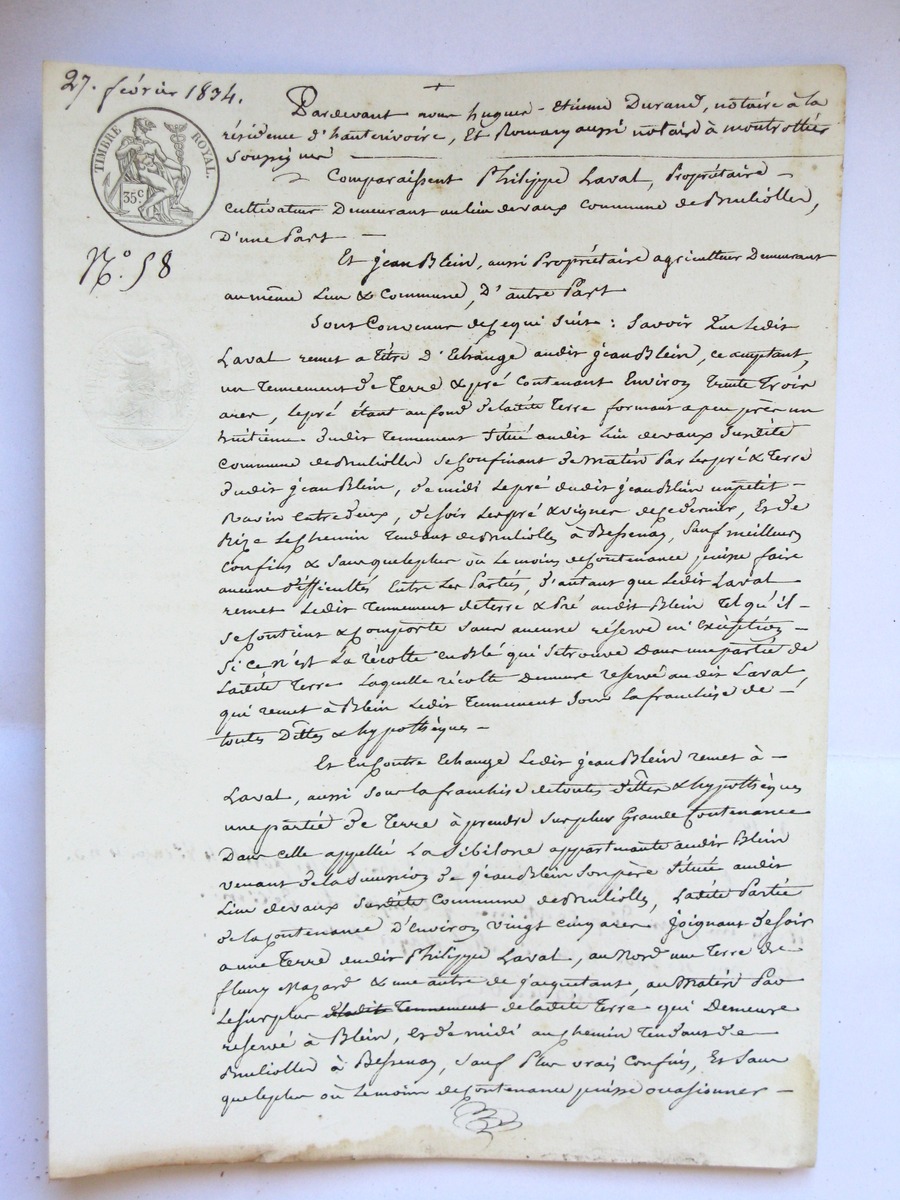 27. février 1834.
TIMBRE ROYAL.
35c
N.° 58
Pardevant nous hugues-Etienne Durand, notaire à la
résidence d'hauterivoire, Et Romany aussi notaire à montrottier
soussigné
Comparaissent Philippe Laval, Propriétaire
cultivateur Demeurant au lieu devaux commune de Brulliolles,
D'une Part
Et jean Blein, aussi Propriétaire agriculteur Demeurant
au même Lieu & Commune, D'autre Part
Sont Convenus de ce qui suit : Savoir Que Ledit
Laval remet a titre d'Echange audit jean Blein, ce acceptant,
un Tennement de Terre & pré Contenant Environ trente trois
ares, Le pré étant au fond de ladite Terre formant a peu près un
huitieme dudit Tennement Situé audit lieu devaux Susdite
commune de Brulliolles se Confinant de Matin Par Les pré & Terre
dudit jean Blein, de midi Le pré dudit jean Blein un petit
Ravin Entre deux, de soir Les pré & vignes de ce dernier, Et de
Bize Le Chemin Tendant de Brulliolles à Bessenay, Sauf meilleurs
Confins & Sans que le plus où Le moins de Contenance puisse faire
aucune difficultés Entre Les Parties, d'autant que Ledit Laval
remet Ledit Tennement de terre & Pré audit Blein Tel qu'il
se Contient & Comporte Sans aucune réserve ni Exception
Si ce n'est La récolte en Blé qui se trouve Dans une partie de
Ladite Terre Laquelle récolte Demeure reservé audit Laval,
qui remet à Blein Ledit Tennement Sous La franchise de
toutes Dettes & hypothèques
Et En Contre Echange Ledit jean Blein remet à
Laval, aussi Sous la franchise de toutes dettes & hypothèques
une partie de Terre à prendre Sur plus Grande Contenance
Dans celle appellée La Sibilone appartenante audit Blein
venant de la Succession de jean Blein Son père Située audit
Lieu devaux Susdite Commune de Brulliolles, Ladite Partie
de la Contenance d'Environ vingt cinq ares joignant de soir
a une Terre dudit Philippe Laval, au Nord une Terre de
fleury Mazard & une autre de jacquetant, au Matin Par
Le surplus dudit Tennement de ladite Terre qui Demeure
reservé à Blein, Et de midi au chemin Tendant de
Brulliolles à Bessenay, Sauf Plus vrais Confins, Et Sans
que le plus où Le moins de Contenance puisse occasionner